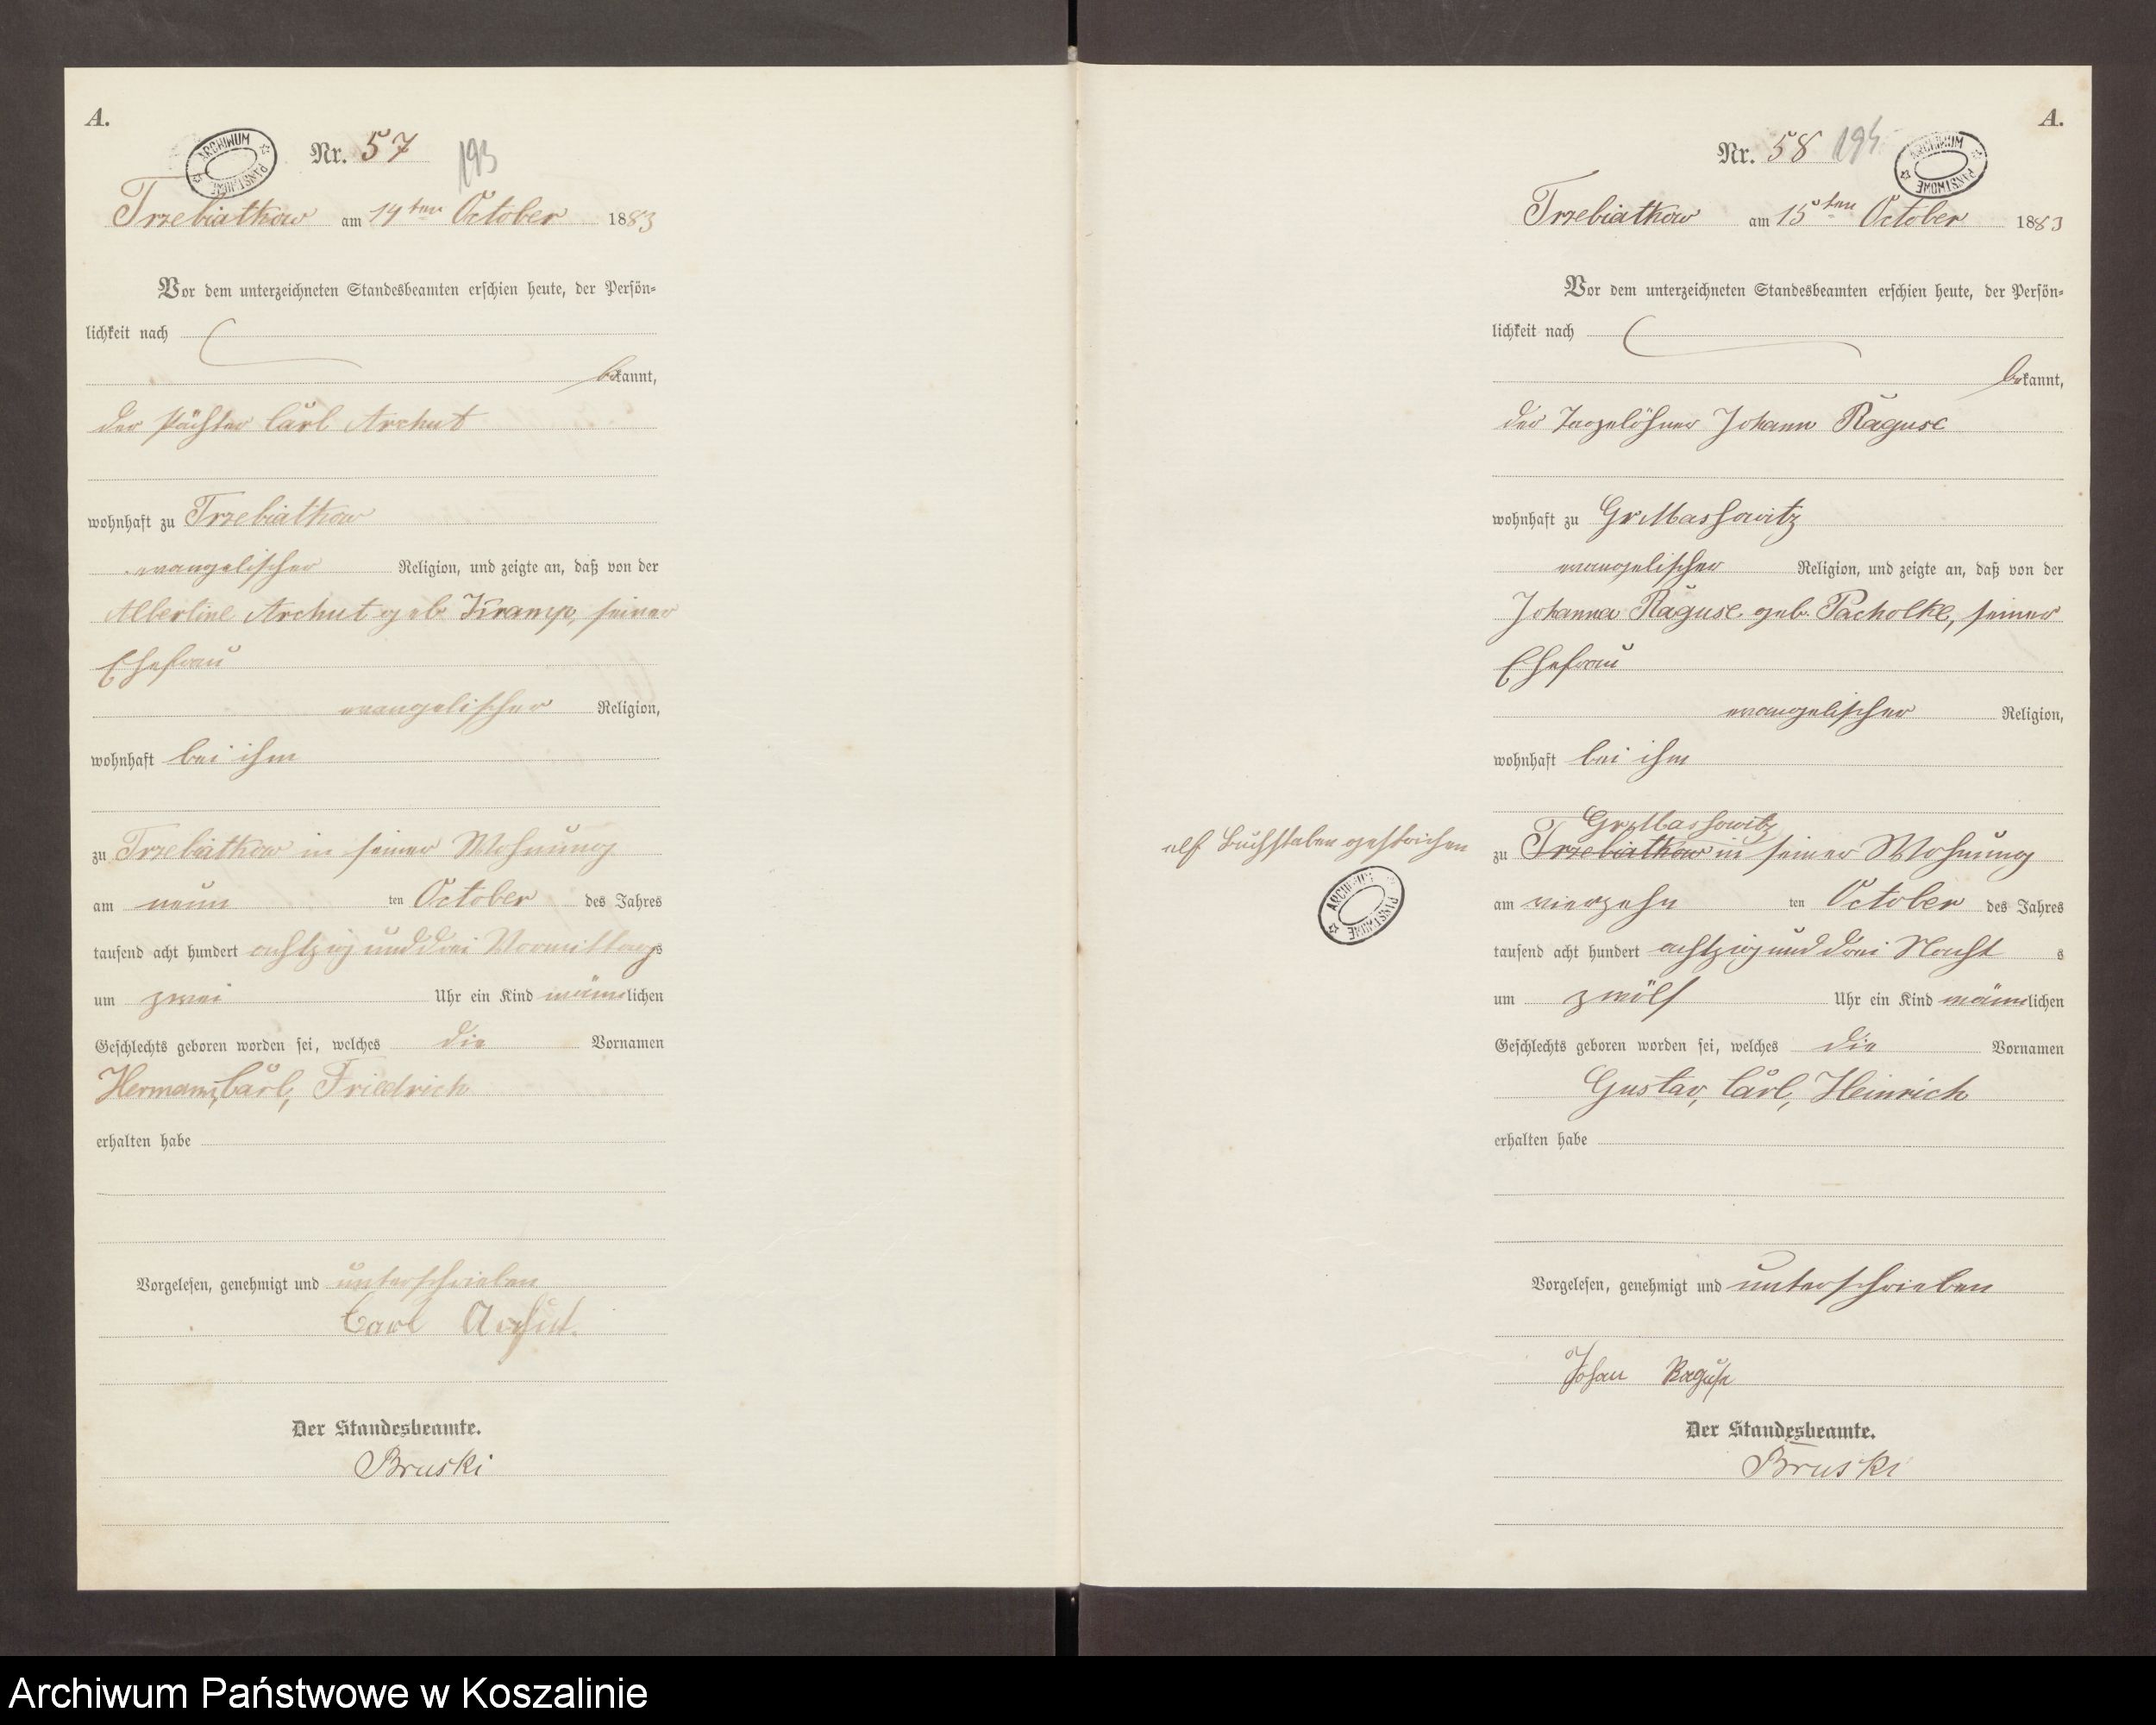 A.
Nr. 57
193
ARCHIWUM PAŃSTWOWE
Trzebiatkow am 14ten October 1883
Vor dem unterzeichneten Standesbeamten erschien heute, der Persön-
lichkeit nach
bekannt,
der Pächter Carl Archut
wohnhaft zu Trzebiatkow
evangelischer Religion, und zeigte an, daß von der
Albertine Archut geb. Kramp, seiner
Ehefrau
evangelischer Religion,
wohnhaft bei ihm
zu Trzebiatkow in seiner Wohnung
am neun ten October des Jahres
tausend acht hundert achtzig und drei Vormittags
um zwei Uhr ein Kind männlichen
Geschlechts geboren worden sei, welches die Vornamen
Hermann, Carl, Friedrich
erhalten habe
Vorgelesen, genehmigt und unterschrieben
Carl Archut.
Der Standesbeamte.
Bruski
A.
Nr. 58
194
ARCHIWUM PAŃSTWOWE
Trzebiatkow am 15ten October 1883
Vor dem unterzeichneten Standesbeamten erschien heute, der Persön-
lichkeit nach
bekannt,
der Tagelöhner Johann Raguse
wohnhaft zu Gr Massowitz
evangelischer Religion, und zeigte an, daß von der
Johanna Raguse geb. Pacholke, seiner
Ehefrau
evangelischer Religion,
wohnhaft bei ihm
Gr Massowitz
elf Buchstaben gestrichen
ARCHIWUM PAŃSTWOWE
zu Trzebiatkow in seiner Wohnung
am vierzehn ten October des Jahres
tausend acht hundert achtzig und drei Nacht s
um zwölf Uhr ein Kind männlichen
Geschlechts geboren worden sei, welches die Vornamen
Gustav, Carl, Heinrich
erhalten habe
Vorgelesen, genehmigt und unterschrieben
Johan Raguse
Der Standesbeamte.
Bruski
Archiwum Państwowe w Koszalinie